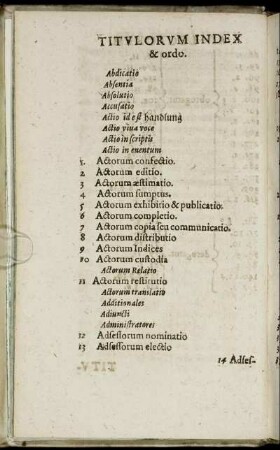 TITVLORVM INDEX
& ordo.
Abdicatio
Absentia
Absolutio
Accusatio
Actio id est handlung
Actio viua voce
Actio in scriptis
Actio in euentum
1. Actorum confectio.
2 Actorum editio.
3 Actorum æstimatio.
4 Actorum sumptus.
5 Actorum exhibitio & publicatio.
6 Actorum completio.
7 Actorum copia seu communicatio.
8 Actorum distributio
9 Actorum Indices
10 Actorum custodia
Actorum Relatio
11 Actorum restitutio
Actorum translatio
Additionales
Adiuncti
Administratores
12 Adsessorum nominatio
13 Adsessorum electio
14 Adses-